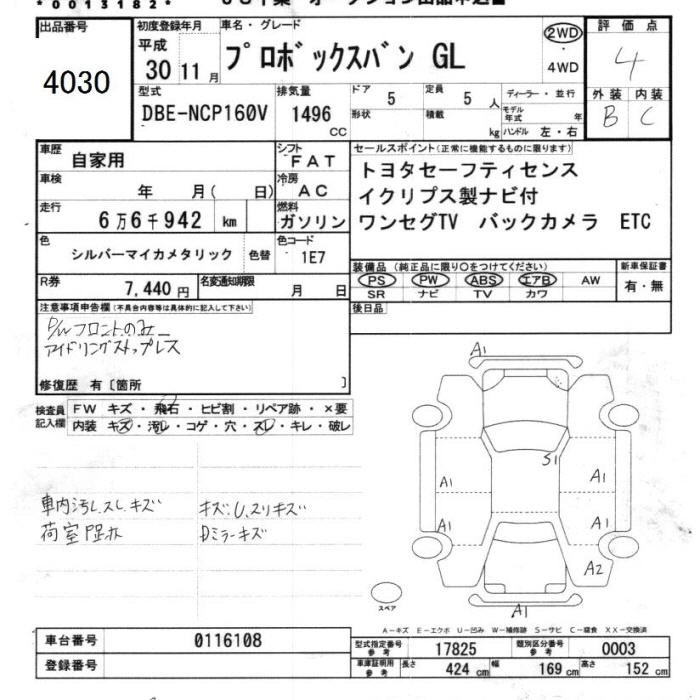 *0013182*
出品番号
4030
初度登録年月
平成
30年11月
車名・グレード
プロボックスバン GL
2WD
・
4WD
評価点
4
外装 内装
B C
型式
DBE-NCP160V
排気量
1496
CC
ドア
5
形状
定員
5人
積載
kg
ディーラー・並行
モデル年式 年
ハンドル 左・右
車歴
自家用
シフト
FAT
車検
年 月( 日)
冷房
AC
走行
6万6千942 km
燃料
ガソリン
色
シルバーマイカメタリック
色替
色コード
1E7
R券
7,440円
名変通知期限
月 日
セールスポイント(正常に機能するものに限ります)
トヨタセーフティセンス
イクリプス製ナビ付
ワンセグTV バックカメラ ETC
装備品(純正品に限り○をつけてください)
PS PW ABS エアB AW
SR ナビ TV カワ
新車保証書
有・無
後日品
注意事項申告欄(不具合内容等は具体的に記入して下さい)
P/Wフロントのみ
アイドリングストップレス
修復歴 有〔箇所 〕
検査員記入欄
FW キズ・飛石・ヒビ割・リペア跡・×要
内装 キズ・汚レ・コゲ・穴・スレ・キレ・破レ
車内汚レ、スレ、キズ
荷室
キズ、U、スリキズ
Dミラーキズ
A1
S1
A1
A1
A1
A1
A2
A1
スペア
A-キズ E-エクボ U-凹み W-補修跡 S-サビ C-腐食 XX-交換済
車台番号
0116108
登録番号
型式指定番号
参考
17825
類別区分番号
参考
0003
車庫証明用
参考
長さ 424 cm 幅 169 cm 高さ 152 cm